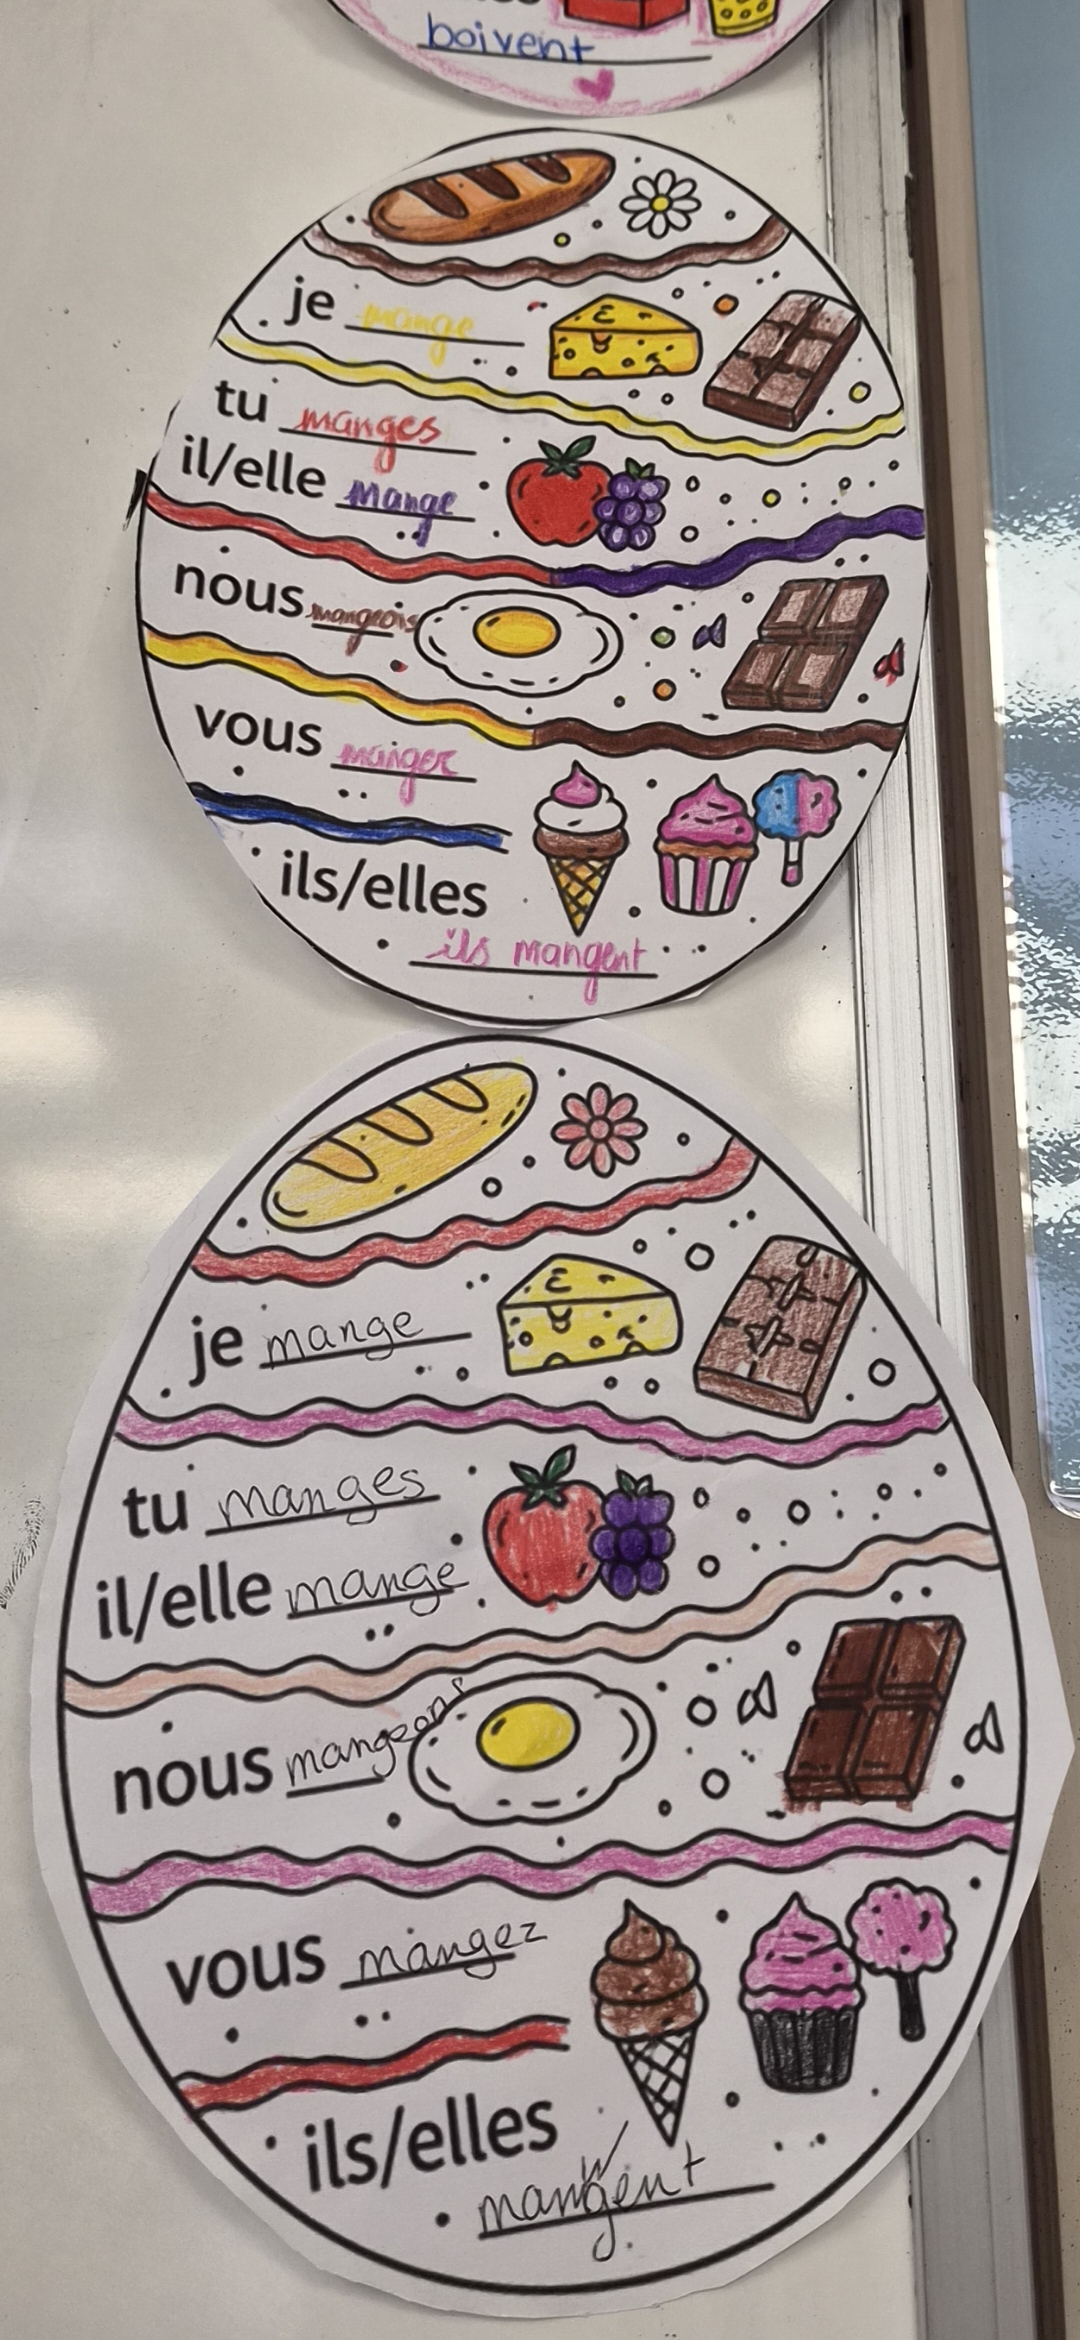 boivent
je mange
tu manges
il/elle mange
nous mangeois
vous manger
ils/elles
ils mangent
je mange
tu manges
il/elle mange
nous mangeons
vous mangez
ils/elles
mangent